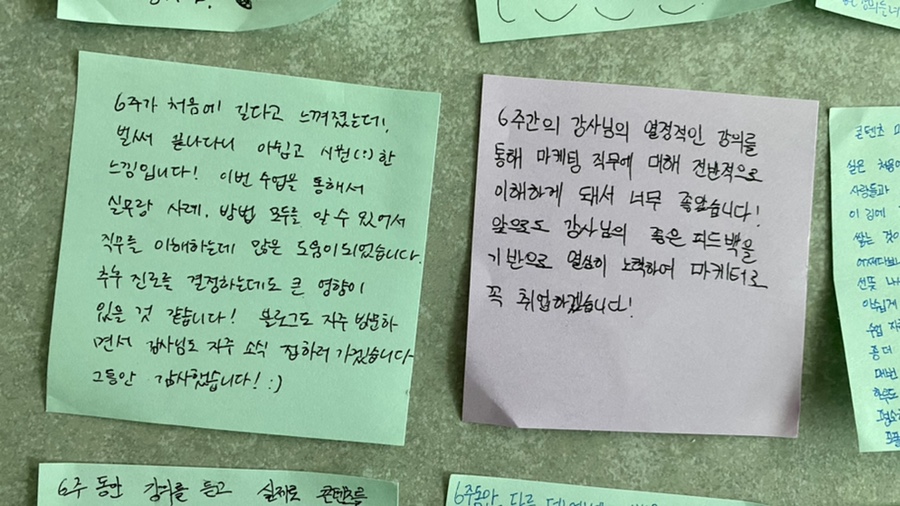 6주가 처음에 길다고 느껴졌는데!,
벌써 끝나다니 아쉽고 시원(:)한
느낌입니다! 이번 수업을 통해서
실무랑 사례, 방법 모두를 알 수 있어서
직무를 이해하는데 많은 도움이 되었습니다.
추후 진로를 결정하는데도 큰 영향이
있을 것 같습니다! 블로그도 자주 방문하
면서 강사님도 자주 소식 접하러 가겠습니다
그동안 감사했습니다! :)
6주간의 강사님의 열정적인 강의를
통해 마케팅 직무에 대해 전반적으로
이해하게 돼서 너무 좋았습니다!
앞으로도 강사님의 좋은 피드백을
기반으로 열심히 노력하여 마케터로
꼭 취업하겠습니다!
콘텐츠
싶은 처음
사람들과
이 길에
쌓는 것이
선뜻
수업
좀 더
매번
하루도
6주 동안 강의를 듣고 실제로 콘텐츠를
6주동안, 다른